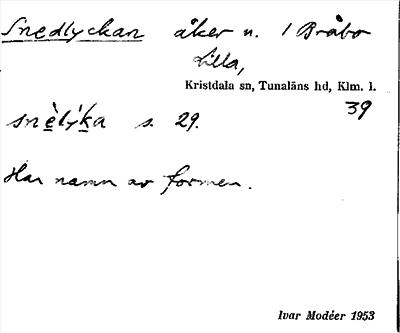 Snedlyckan åker n. 1 Bråbo
Lilla,
Kristdala sn, Tunaläns hd, Klm. l.
39
snè̱lýḵa s. 29.
Har namn av formen.
Ivar Modéer 1953